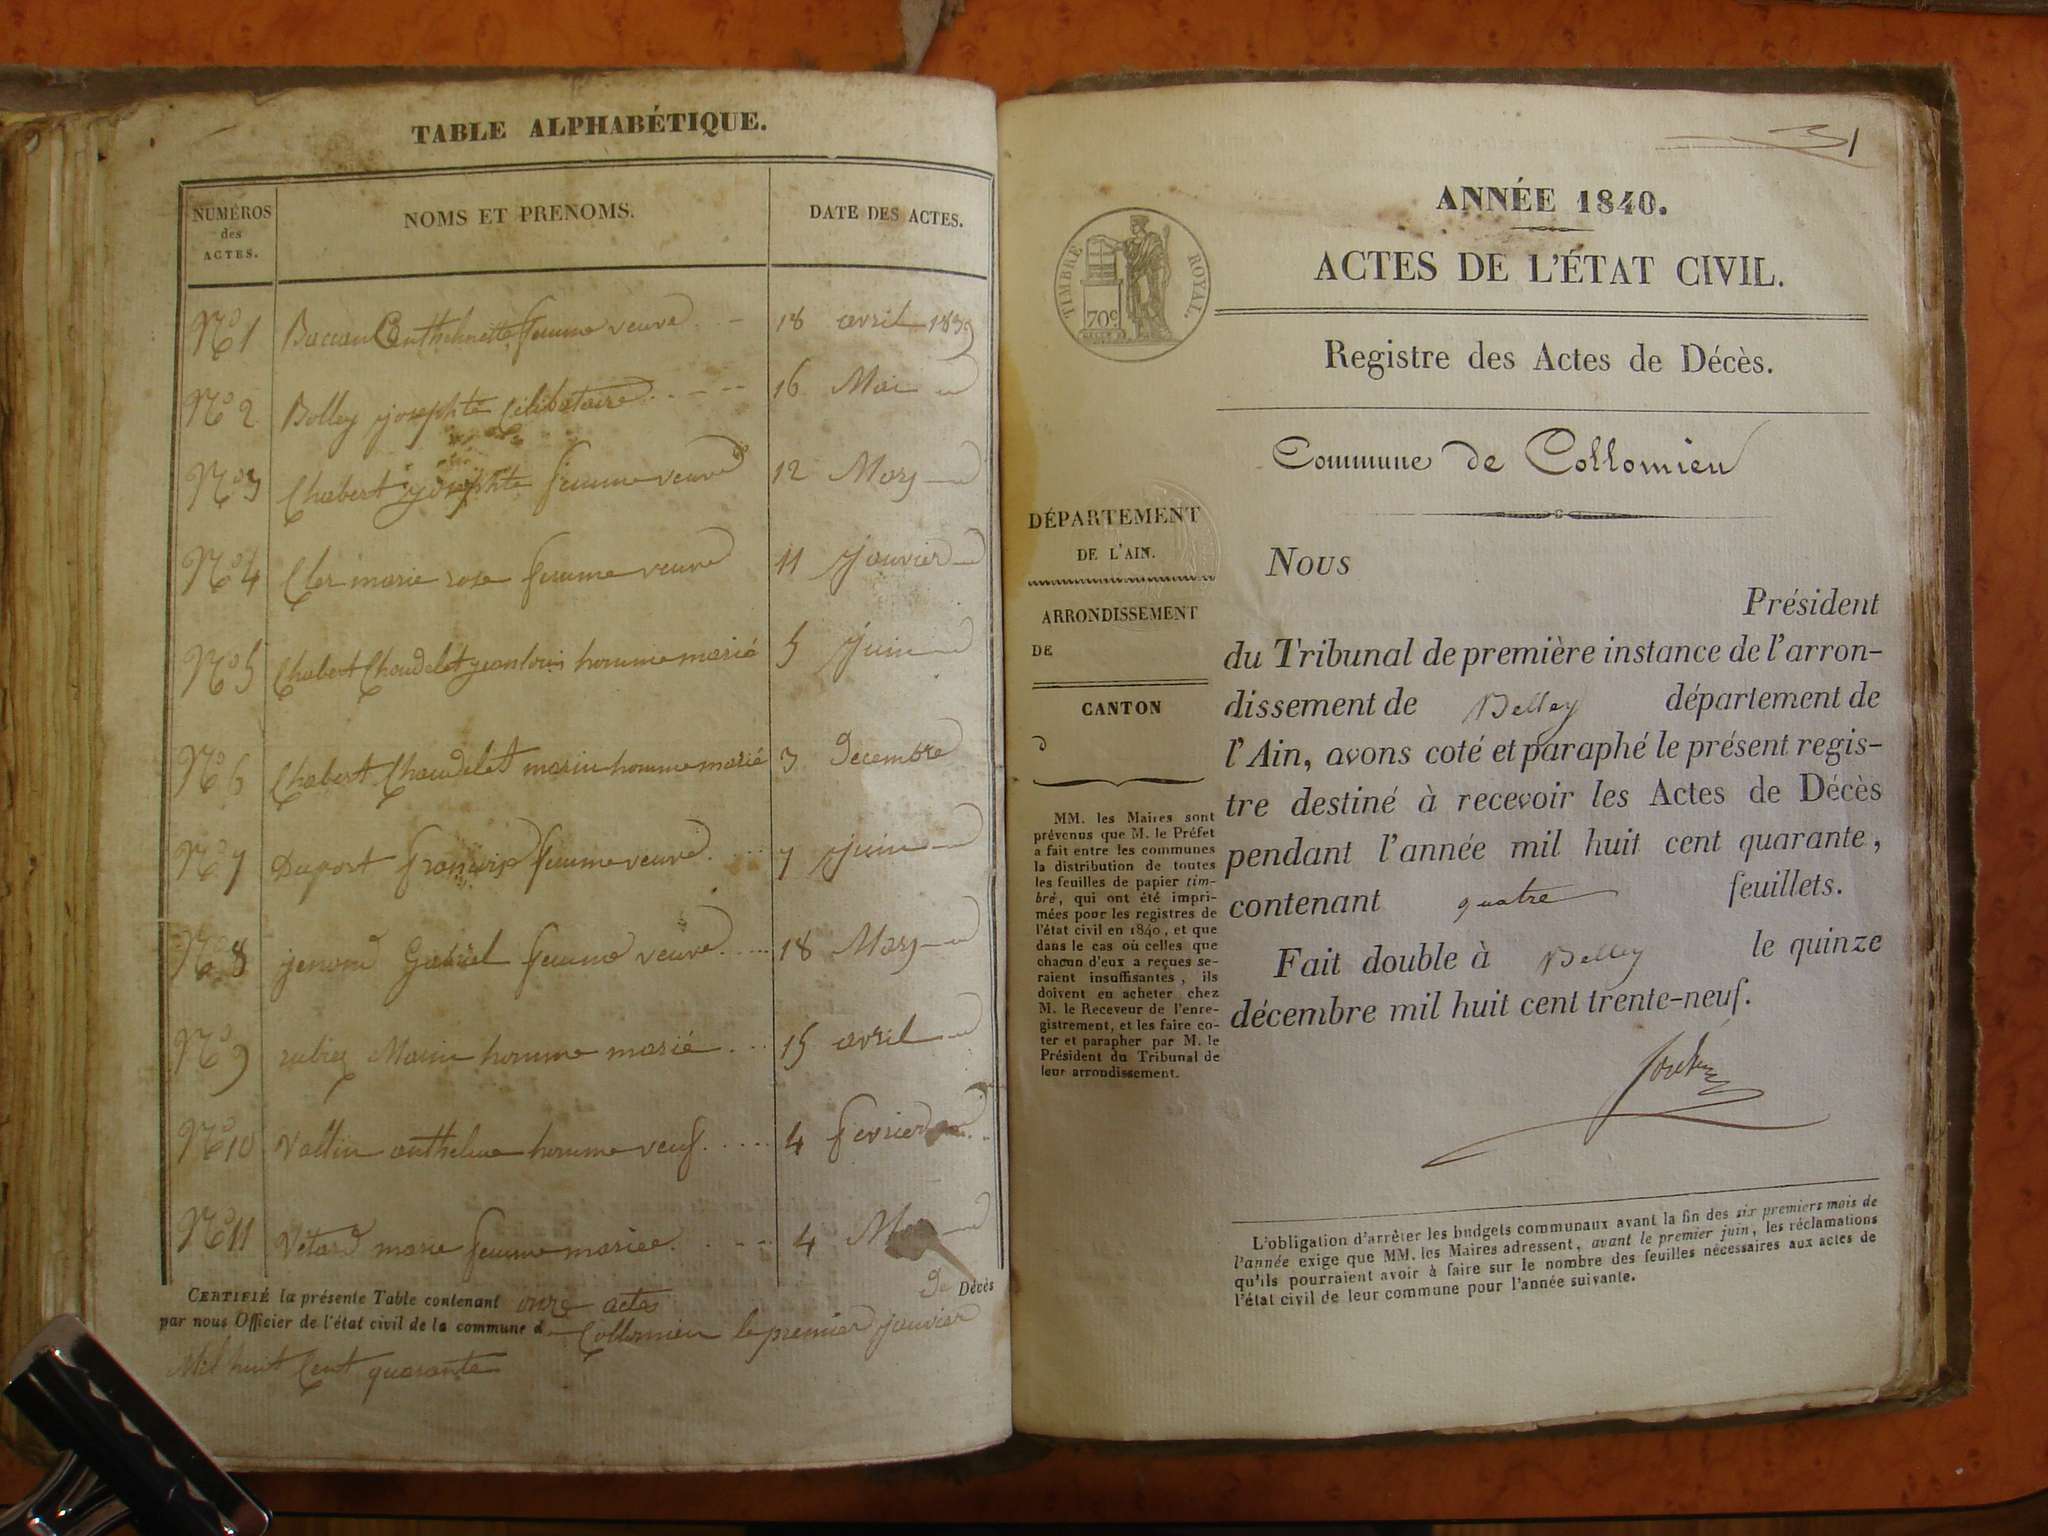 TABLE ALPHABÉTIQUE.
NUMÉROS des ACTES.
NOMS ET PRENOMS.
DATE DES ACTES.
N° 1 femme veuve 18 avril 1839
N° 2 Bolley josephte Célibataire 16 Mai
N° 3 Chabert josephte femme veuve 12 Mars
N° 4 Cler marie rose femme veuve 11 janvier
N° 5 Chabert Chaudelet jean louis homme marié 5 juin
N° 6 Chabert Chaudelet marin homme marié 3 Decembre
N° 7 Duport françoise femme veuve 7 juin
N° 8 femme veuve 18 Mars
N° 9 Marin homme marié 15 avril
N° 10 Vallin anthelme homme veuf 4 fevrier
N° 11 Vétard marie femme mariée 4
CERTIFIÉ la présente Table contenant onze actes De Décès
par nous Officier de l'état civil de la commune de Collomieu le premier janvier
Mil huit Cent quarante
31
ANNÉE 1840.
ACTES DE L'ÉTAT CIVIL.
TIMBRE ROYAL.
70 c
Registre des Actes de Décès.
Commune de Collomieu
DÉPARTEMENT
DE L'AIN.
ARRONDISSEMENT
DE
CANTON
D
MM. les Maires sont
prévenus que M. le Préfet
a fait entre les communes
la distribution de toutes
les feuilles de papier tim-
bré, qui ont été impri-
mées pour les registres de
l'état civil en 1840, et que
dans le cas où celles que
chacun d'eux a reçues se-
raient insuffisantes, ils
doivent en acheter chez
M. le Receveur de l'enre-
gistrement, et les faire co-
ter et parapher par M. le
Président du Tribunal de
leur arrondissement.
Nous
Président
du Tribunal de première instance de l'arron-
dissement de Belley département de
l'Ain, avons coté et paraphé le présent regis-
tre destiné à recevoir les Actes de Décès
pendant l'année mil huit cent quarante,
contenant quatre feuillets.
Fait double à Belley le quinze
décembre mil huit cent trente-neuf.
L'obligation d'arrêter les budgets communaux avant la fin des six premiers mois de
l'année exige que MM. les Maires adressent, avant le premier juin, les réclamations
qu'ils pourraient avoir à faire sur le nombre des feuilles nécessaires aux actes de
l'état civil de leur commune pour l'année suivante.